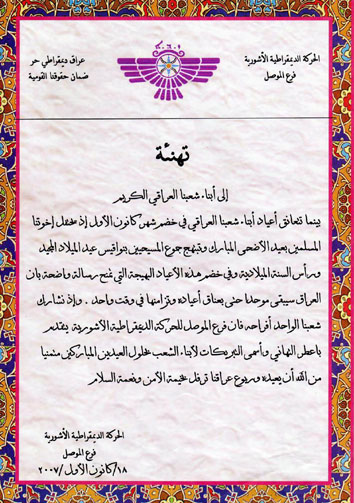 ܙܘܥܐ
الحركة الديمقراطية الآشورية
فرع الموصل
عراق ديمقراطي حر
ضمان حقوقنا القومية
تهنئة
إلى أبناء شعبنا العراقي الكريم
بينما تتعانق أعياد أبناء شعبنا العراقي في خضم شهر كانون الأول إذ يحتفل إخوتنا
المسلمين بعيد الأضحى المبارك وتبتهج جموع المسيحيين بنواقيس عيد الميلاد المجيد
ورأس السنة الميلادية وفي خضم هذه الأعياد البهيجة التي تمنح رسالة واضحة بان
العراق سيبقى موحدا حتى بعناق أعياده وتزامنها في وقت واحد . وإذ نشارك
شعبنا الواحد أفراحه فان فرع الموصل للحركة الديمقراطية الآشورية يتقدم
باعطر التهاني وأسمى التبريكات لأبناء الشعب بحلول العيدين المباركين متمنيا
من الله أن يعيده وربوع عراقنا ترفل بخيمة الأمن ونعمة السلام
الحركة الديمقراطية الآشورية
فرع الموصل
١٨/كانون الأول/٢٠٠٧